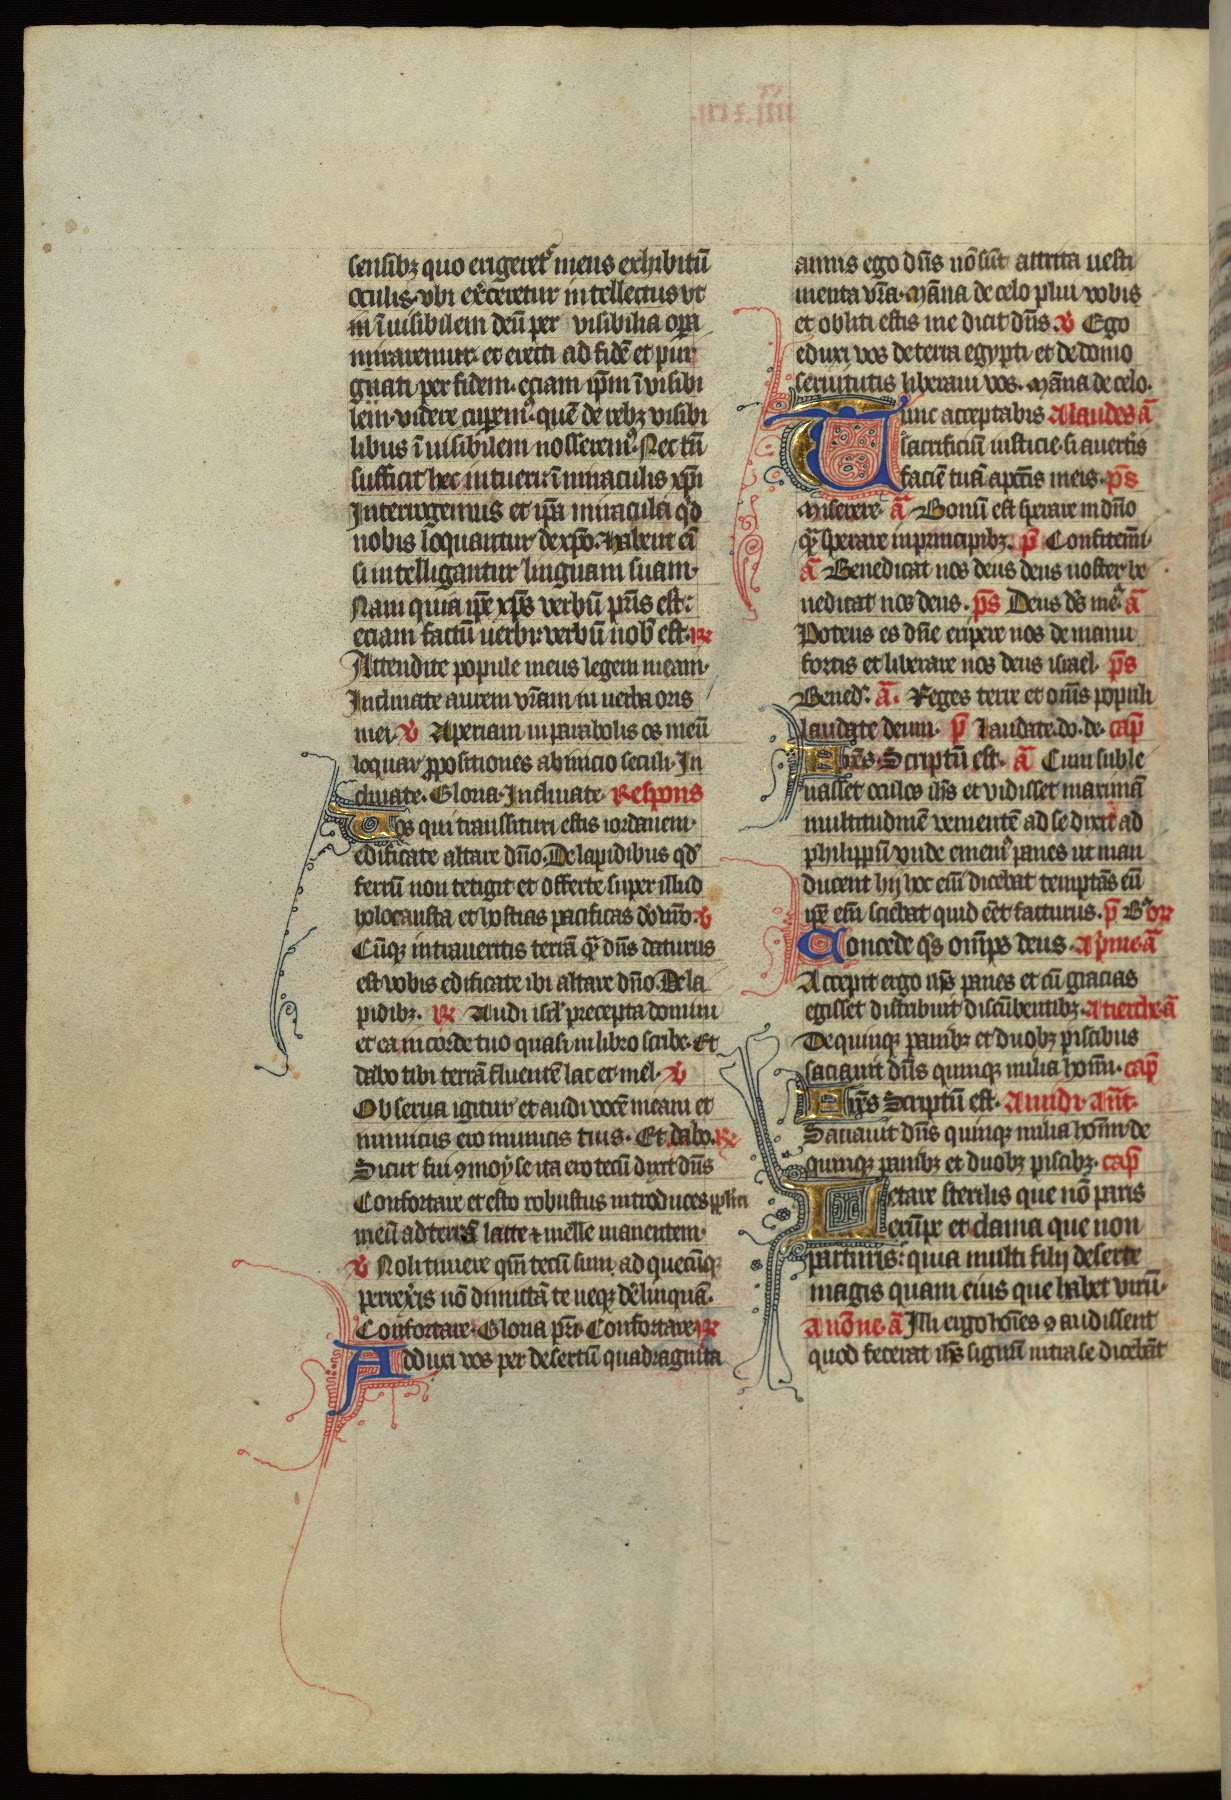 sensibȝ quo erigeret᷒ mens exhibitū
oculis. vbi ex̾ceretur intellectus vt
in ī uisibilem deū per visibilia oꝑa
miraremur. et erecti ad fidē et pur
gnati per fidem. eciam ip̄m ī visibi
lem. videre cuperemꝰ. quē de rebȝ visibi
libus ī uisibilem nosseremꝰ. Nec tn̄
sufficit hec intueri: ī miraculis xp̄i
Interrogemus et ip̄a miracula qͩd
nobis loquantur de xp̄o. Habent eī
si intelligantur linguam suam.
Nam quia ip̄e xp̄s verbū pr̄is est:
eciam factū uerbi: verbū nob̄ est. ℟
Attendite popule meus legem meam.
Inclinate aurem vr̄am in uerba oris
mei. ℣ Aperiam in parabolis os meū
loquar ꝓpositiones ab inicio seculi. In
clinate. Gloria. Inclinate. Respons
Vos qui transsituri estis iordanem.
edificate altare dn̄o. De lapidibus qͩd
ferrū non tetigit et offerte super illud
holocausta et hostias pacificas d̄o vr̄o. ℣
Cūqȝ intraueritis terrā qͣ dn̄s daturus
est vobis edificate ibi altare dn̄o. De la
pidibȝ. ℟ Audi isrl̄ precepta domini
et ea in corde tuo quasi in libro scribe. Et
dabo tibi terrā fluentē lac et mel. ℣
Obserua igitur et audi vocē meam et
inimicus ero inimicis tuis. Et dabo. ℟
Sicut fui ꝯ moyse ita ero tecū dixit dn̄s
Confortare et esto robustus introduces ppl̄m
meū ad terrā lacte ⁊ melle manentem.
℣ Noli timere qm̄ tecū sum. ad quecūqȝ
perrexis nō dimittā te neqȝ derelinquā.
Confortare. Gloria pr̄i. Confortare. ℟
Adduxi vos per desertū quadraginta
annis ego dn̄s nō sūt attrita uesti
menta vr̄a. Māna de celo plui vobis
et obliti estis me dicit dn̄s. ℣ Ego
eduxi vos de terra egypti et de domo
seruitutis liberaui vos. Māna de celo.
Tunc acceptabis A laudes ā
sacrificiū iusticie. si auertis
faciē tuā a pcc̄is meis. p̄s
Miserere. ā Bonū est sperare in dn̄o
qͣ sperare in principibȝ. p̄ Confitemi
ā Benedicat nos deus deus noster be
nedicat nos deus. p̄s Deus ds̄ meꝰ ā
Potens es dn̄e eripere nos de manu
fortis et liberare nos deus israel. p̄s
Bened. ā. Reges terre et om̄s populi
laudate deum. p̄ Laudate. do. de. cap̄
Fr̄es. Scriptū est. ā Cum suble
uasset oculos ih̄s et vidisset maximā
multitudinē venientē ad se dixit ad
philippū vnde ememꝰ panes ut man
ducent hij hoc eni dicebat temptās eū
ip̄e eni sciebat quid eēt facturus. p̄ Bꝰ or
Concede qs̄ om̄ps deus. A prime. ā
Accepit ergo ih̄s panes et cū gracias
egisset distribuit discūbentibȝ. A tierche. ā
De quinqȝ panibȝ et duobȝ piscibus
saciauit dn̄s quinqȝ milia homī. cap̄
Fr̄es Scriptū est. A midi. an̄t.
Saciauit dn̄s quinqȝ milia homī de
quinqȝ panibȝ et duobȝ piscibȝ. cap̄
Letare sterilis que nō paris
erūpe et clama que non
parturis: quia multi filij deserte
magis quam eius que habet virū.
A nōne. ā Illi ergo hoīes ꝯ audissent
quod fecerat ih̄s signū intra se dicebāt